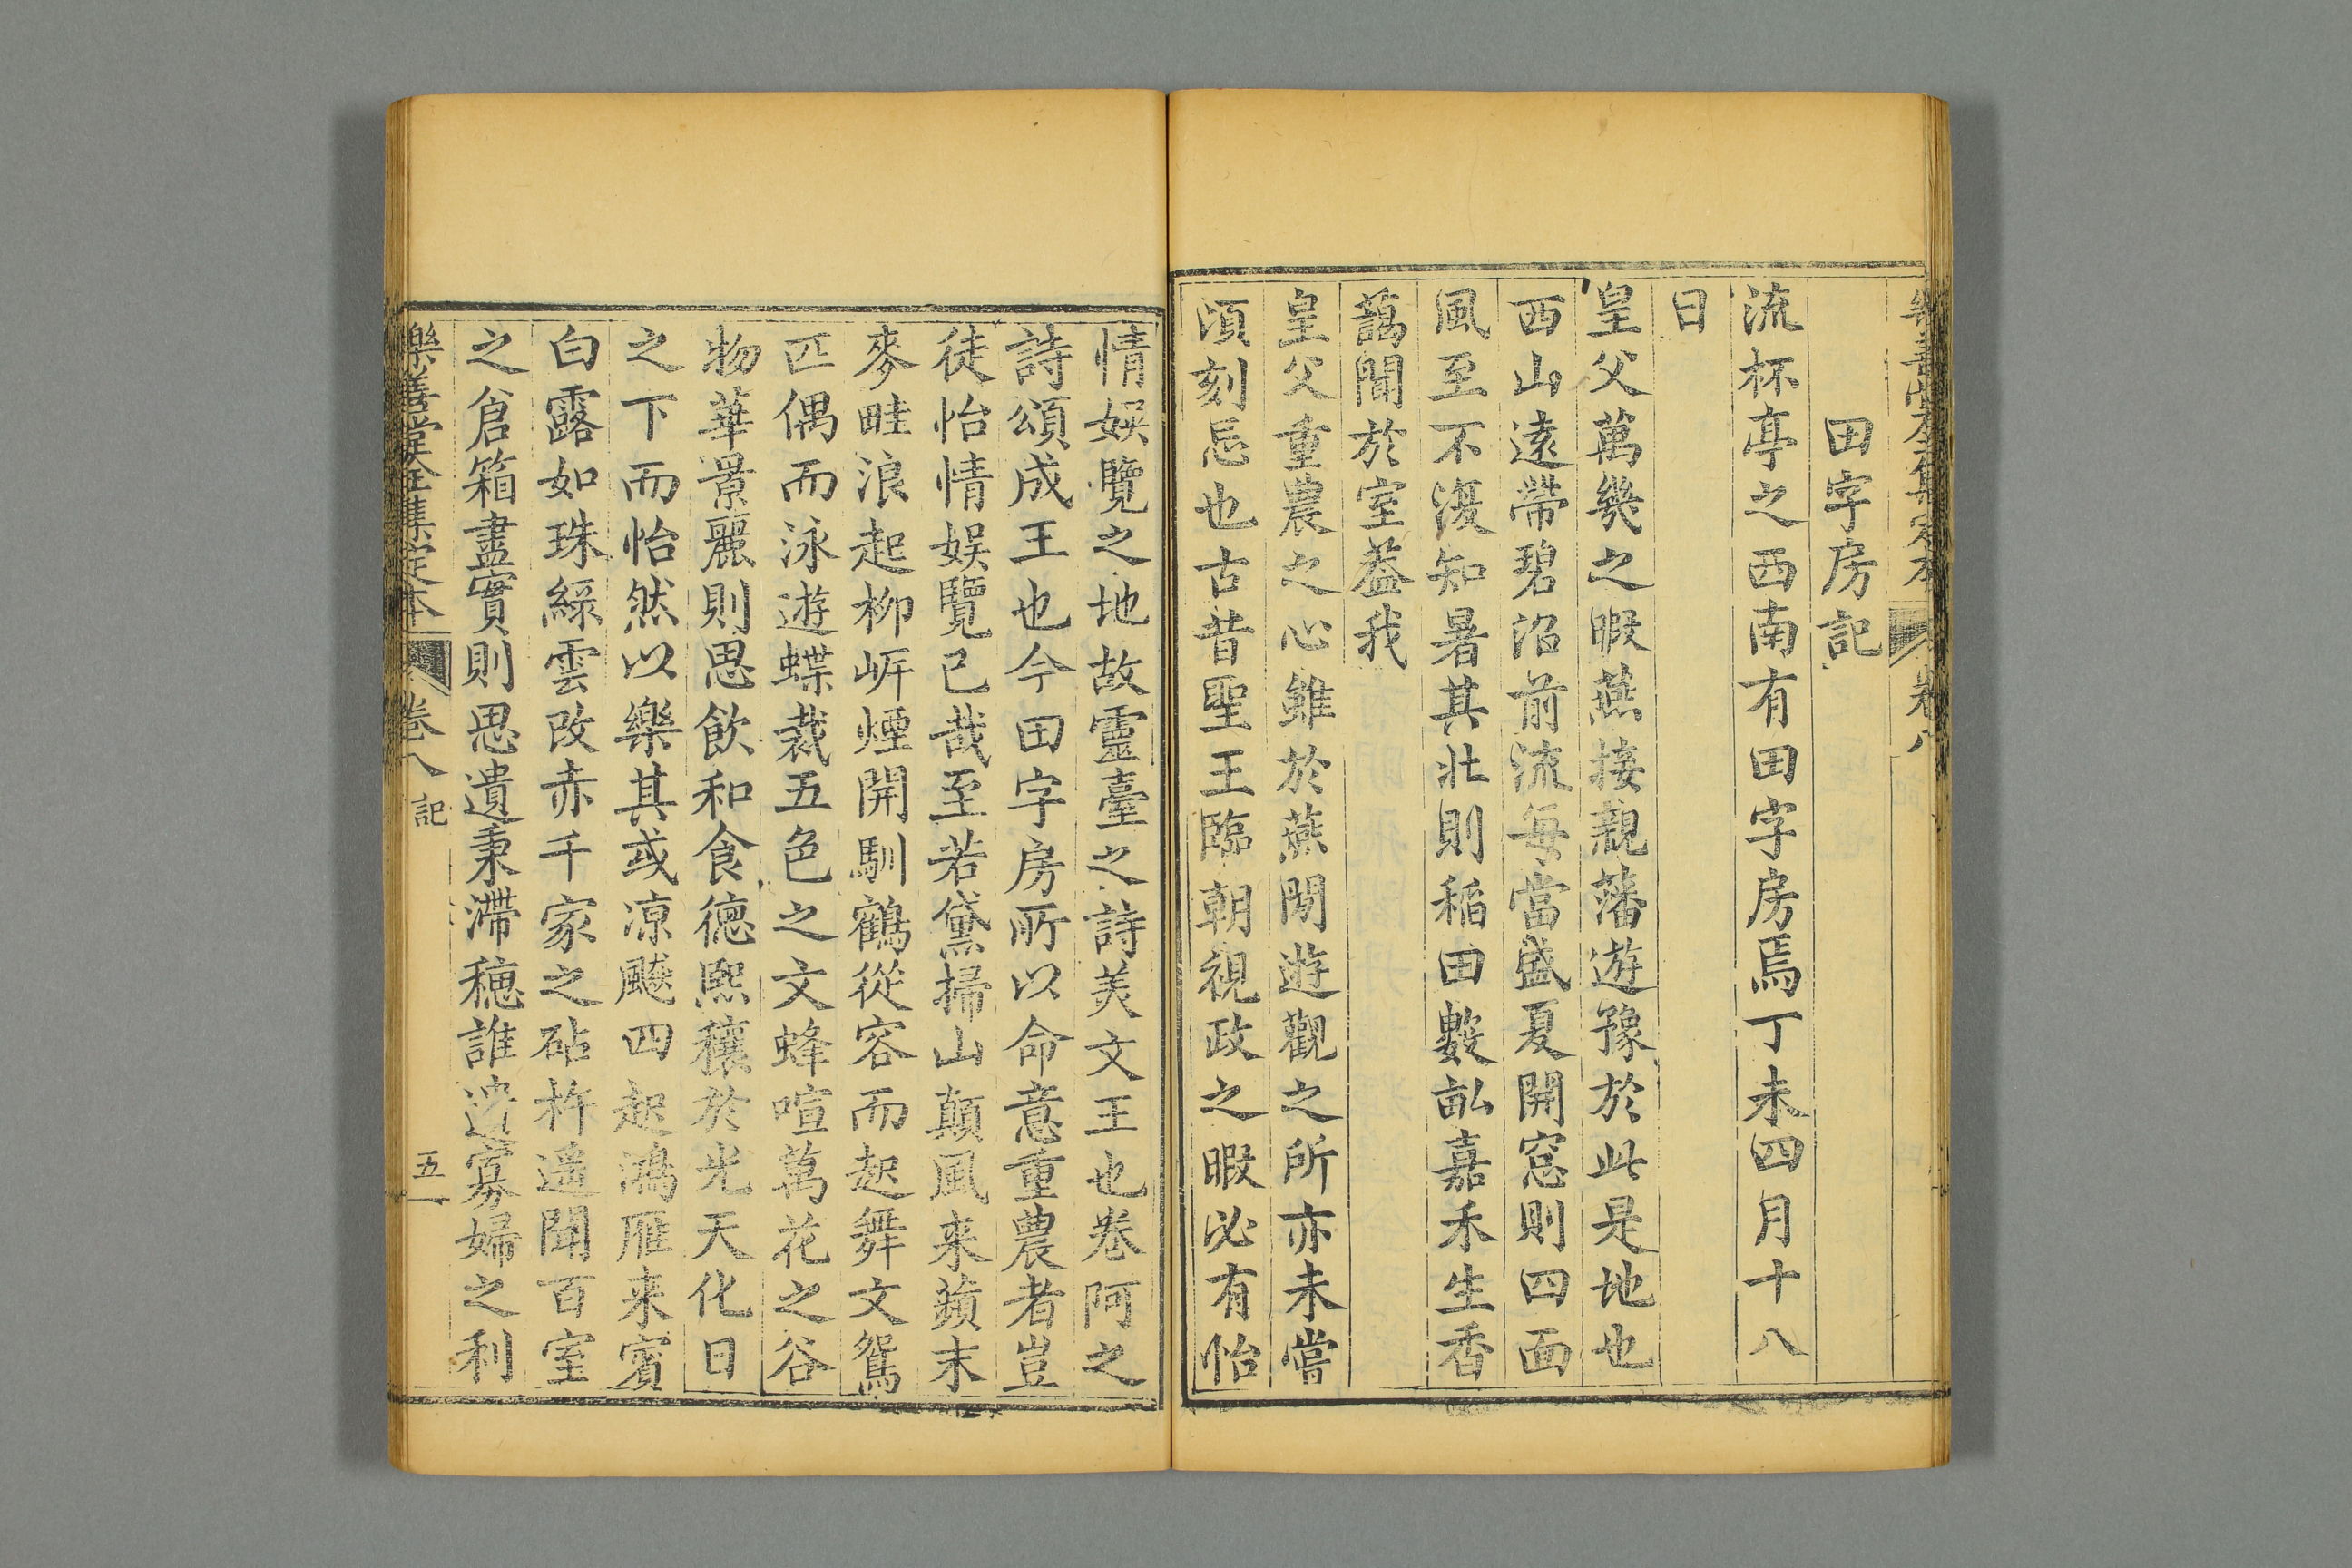 樂善堂全集定本 卷八
田字房記
流杯亭之西南有田字房焉丁未四月十八
日
皇父萬幾之暇燕接親藩遊豫於此是地也
西山遠帶碧沼前流每當盛夏開窓則四面
風至不復知暑其北則稻田數畝嘉禾生香
藹聞於室葢我
皇父重農之心雖於燕閒遊觀之所亦未嘗
頃刻忘也古昔聖王臨朝視政之暇必有怡
情娛覽之地故靈臺之詩美文王也卷阿之
詩頌成王也今田字房所以命意重農者豈
徒怡情娛覽已哉至若黛掃山顛風来蘋末
麥畦浪起柳岍煙開馴鶴從容而起舞文鴛
匹偶而泳遊蝶裁五色之文蜂喧萬花之谷
物華景麗則思飲和食德熙穰於光天化日
之下而怡然以樂其或凉飈四起鴻雁来賓
白露如珠綠雲改赤千家之砧杵遥聞百室
之倉箱盡實則思遺秉滯穗誰遺寡婦之利
樂善堂全集定本 卷八 記 五